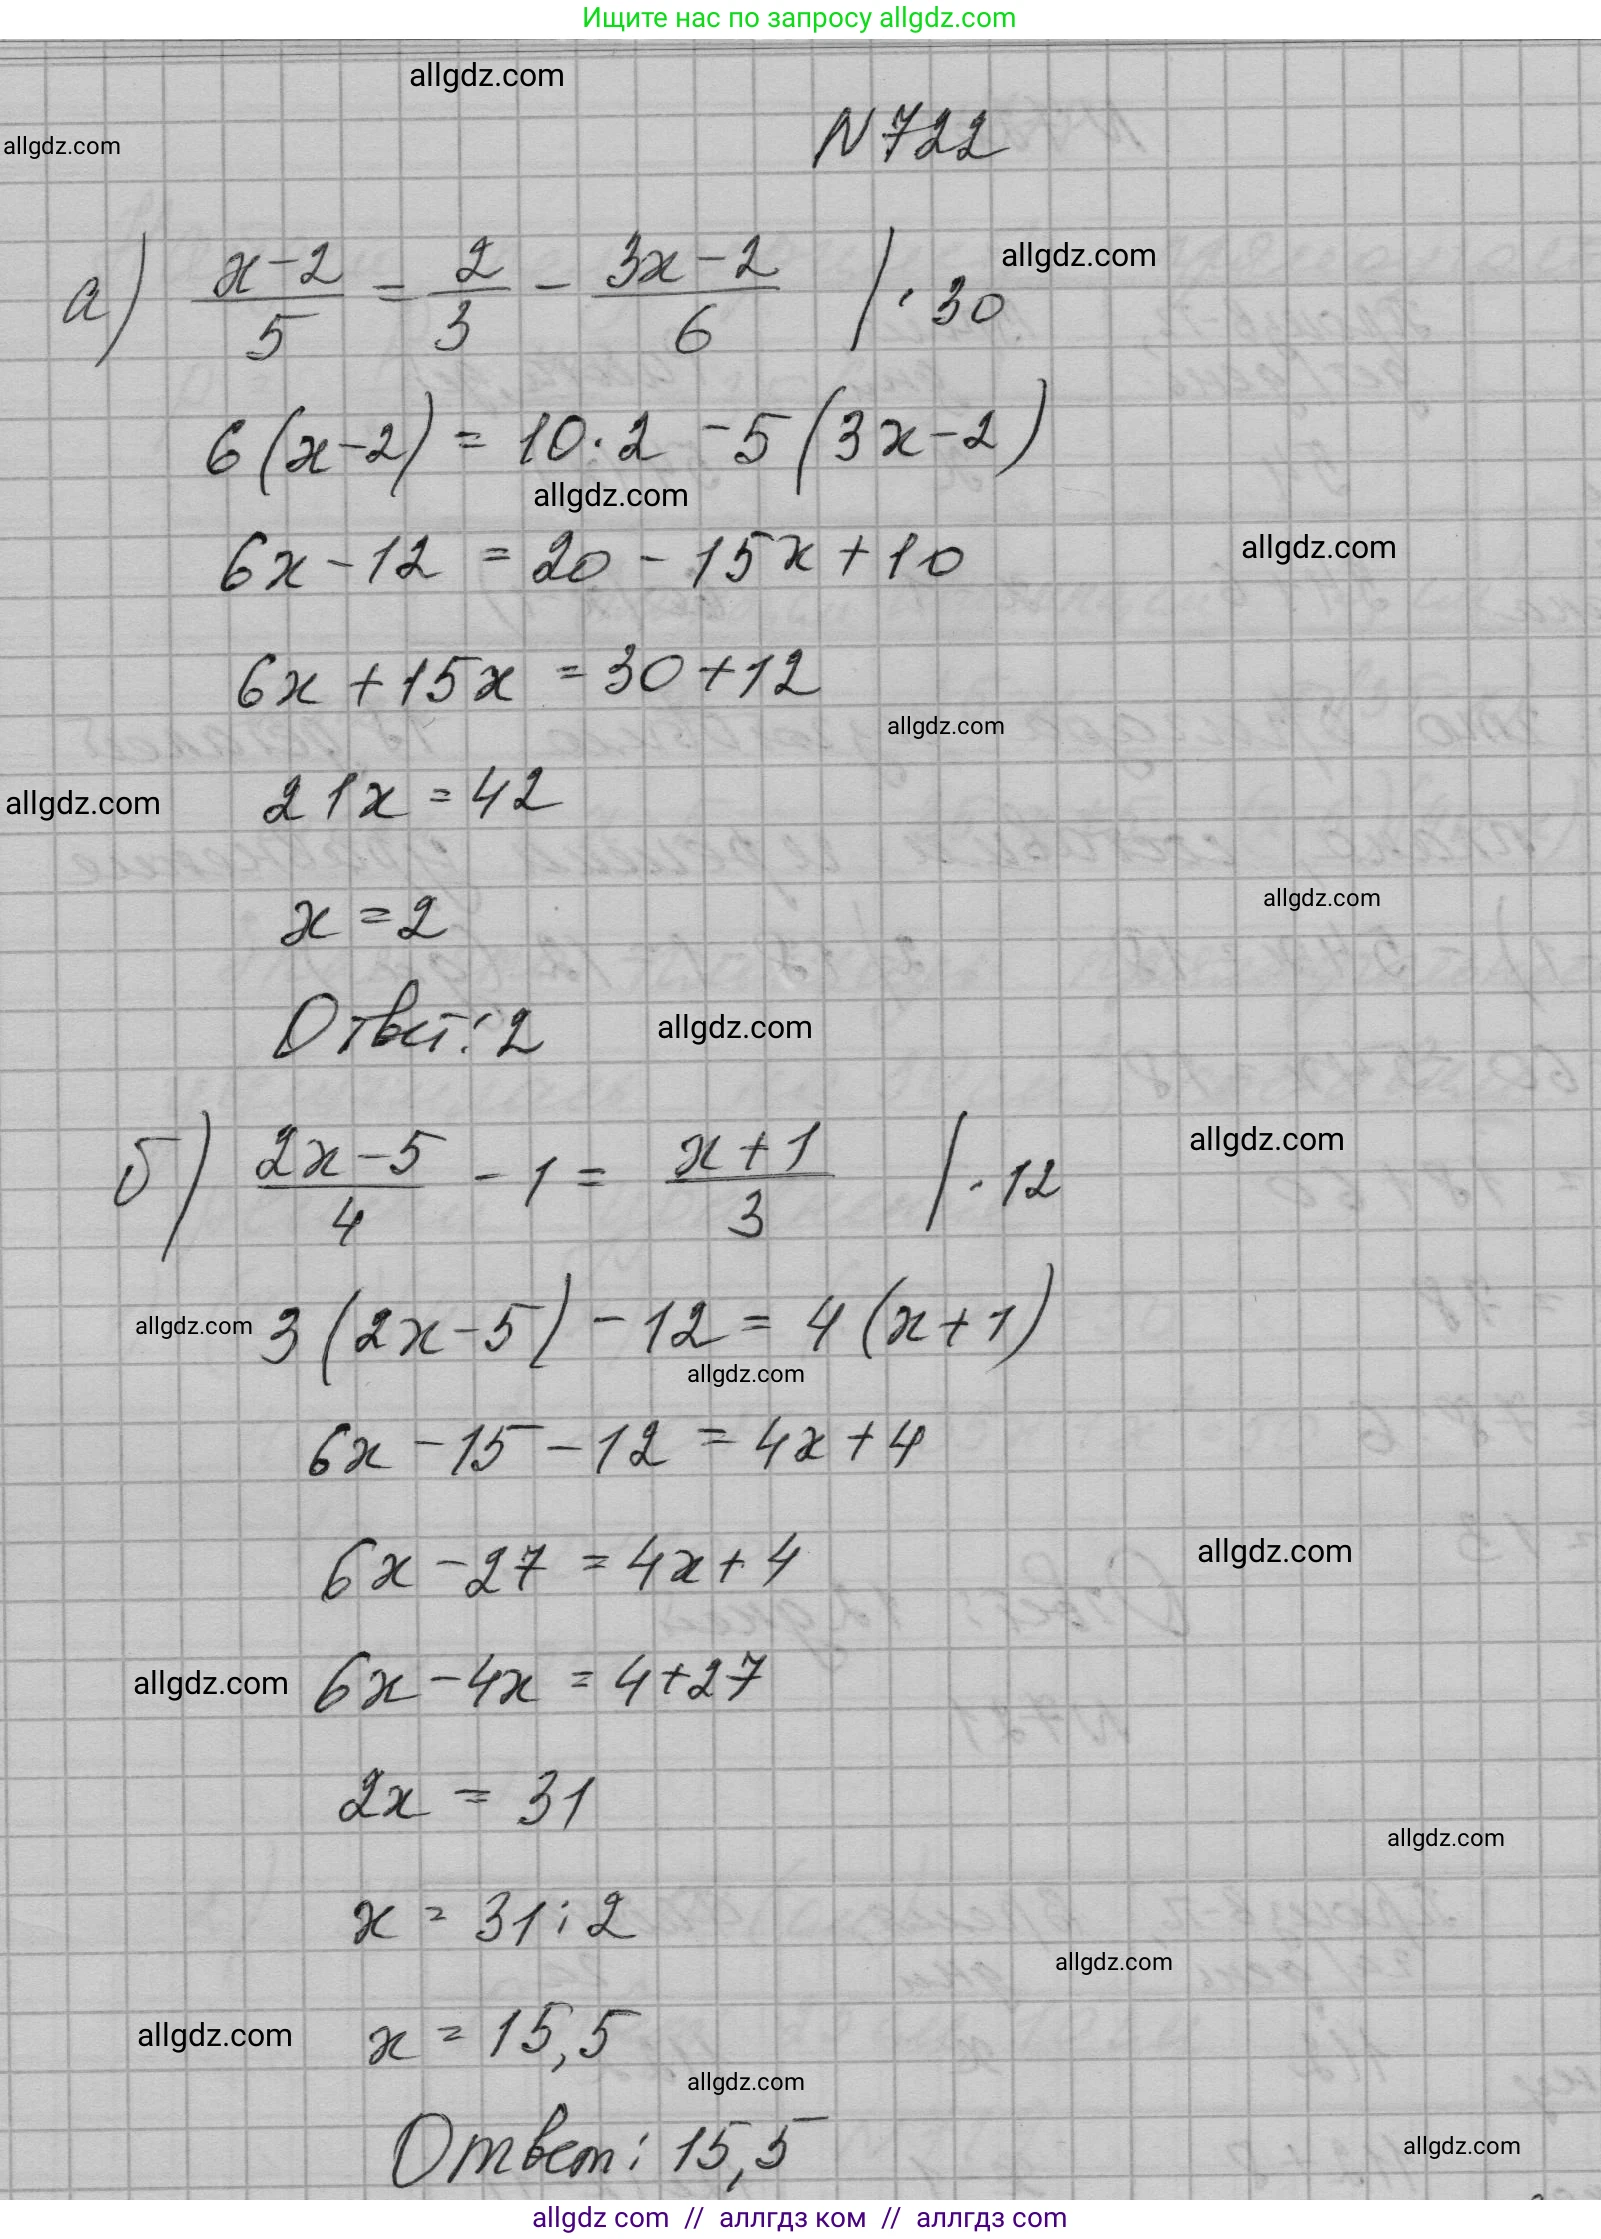 Ищите нас по запросу allgdz.com
allgdz.com
N 722
allgdz.com
а) x-2/5 = 2/3 - 3x-2/6 | · 30
allgdz.com
6(x-2) = 10·2 - 5(3x-2)
allgdz.com
6x-12 = 20-15x+10
allgdz.com
6x+15x = 30+12
allgdz.com
21x = 42
allgdz.com
allgdz.com
x = 2
Ответ: 2
allgdz.com
б) 2x-5/4 - 1 = x+1/3 | · 12
allgdz.com
allgdz.com
3(2x-5)-12 = 4(x+1)
allgdz.com
6x-15-12 = 4x+4
6x-27 = 4x+4
allgdz.com
allgdz.com
6x-4x = 4+27
2x = 31
allgdz.com
x = 31:2
allgdz.com
allgdz.com
x = 15,5
allgdz.com
Ответ: 15,5
allgdz.com
allgdz com // аллгдз ком // аллгдз com